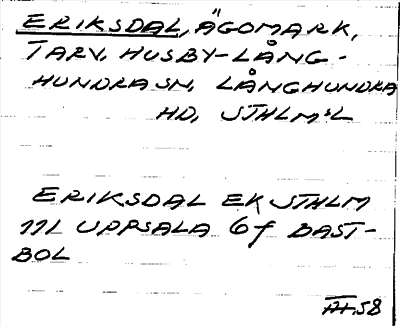 ERIKSDAL, ÄGOMARK,
TARV, HUSBY-LÅNG-
HUNDRA SN, LÅNGHUNDRA
HD, STHLM:L
ERIKSDAL EK STHLM
11L UPPSALA 6f BAST-
BOL
58